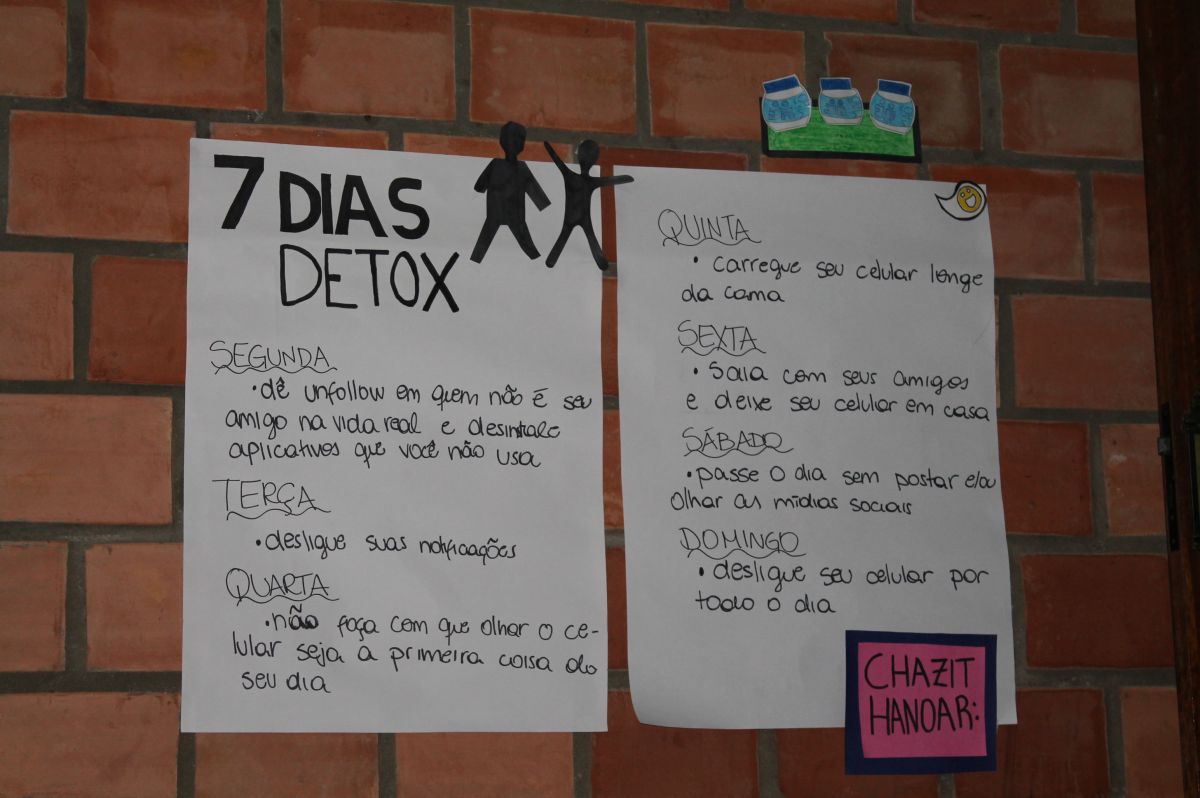 7 DIAS
DETOX
SEGUNDA
• dê unfollow em quem não é seu
amigo na vida real e desinstale
aplicativos que você não usa
TERÇA
• desligue suas notificações
QUARTA
• não faça com que olhar o ce-
lular seja a primeira coisa do
seu dia
QUINTA
• carregue seu celular longe
da cama
SEXTA
• saia com seus amigos
e deixe seu celular em casa
SÁBADO
• passe o dia sem postar e/ou
olhar as mídias sociais
DOMINGO
• desligue seu celular por
todo o dia
CHAZIT
HANOAR: